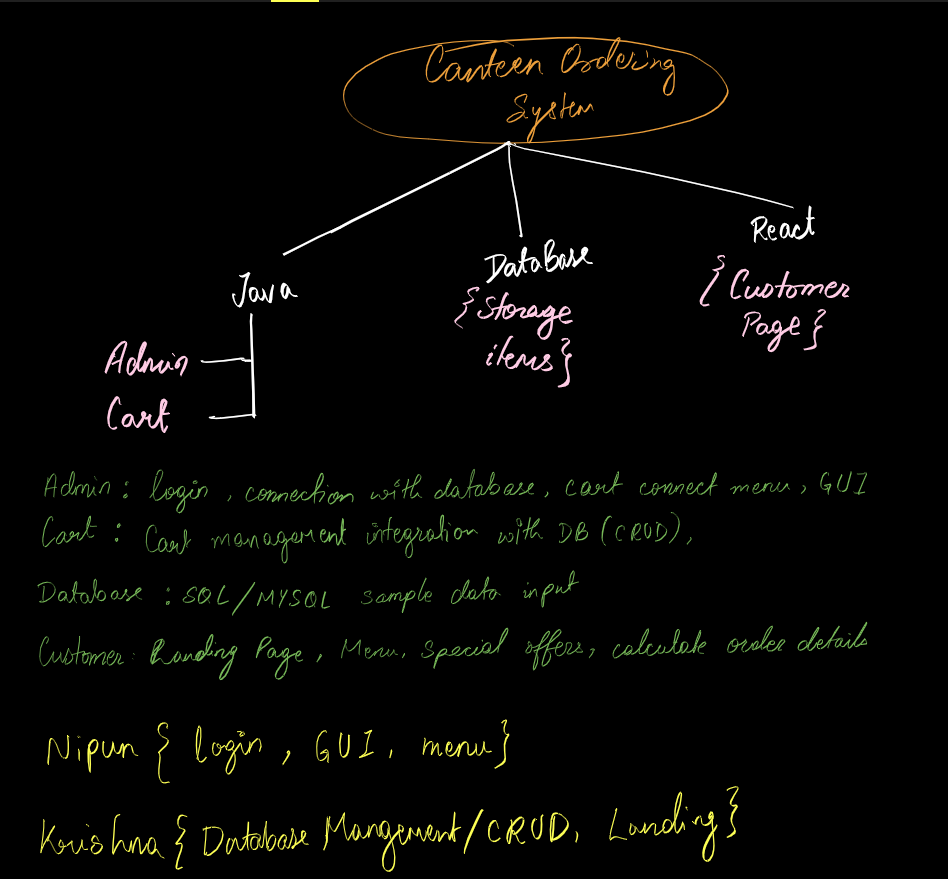 Canteen Ordering
System
React
{ Customer
Page }
DataBase
{ Storage
items }
Java
Admin
Cart
Admin : login , connection with database, cart connect menu , GUI
Cart : Cart management integration with DB (CRUD),
Database : SQL/MYSQL sample data input
Customer: Landing Page , Menu, special offers, calculate order details
Nipun { login , GUI , menu }
Krishna { Database Mangement/CRUD, Landing }